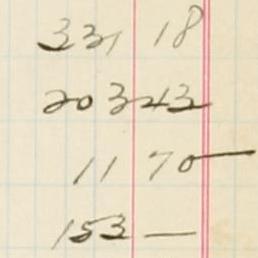 331 18
20343
11 70
153 —